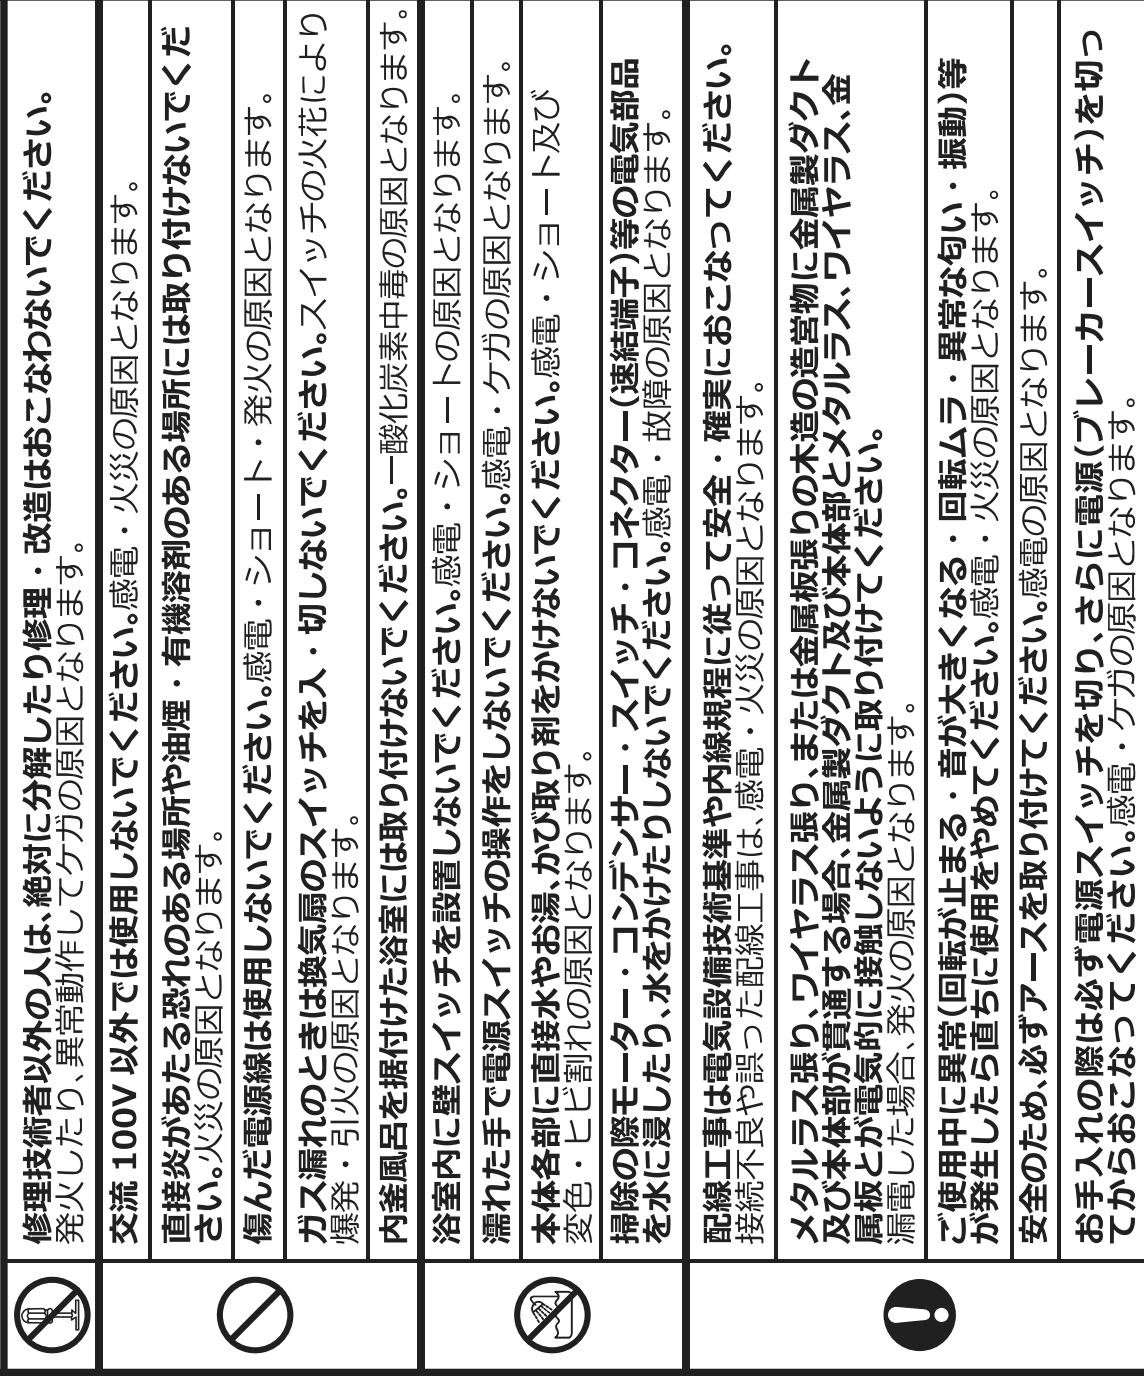 修理技術者以外の人は、絶対に分解したり修理・改造はおこなわないでください。
発火したり、異常動作してケガの原因となります。
交流 100V 以外では使用しないでください。感電・火災の原因となります。
直接炎があたる恐れのある場所や油煙・有機溶剤のある場所には取り付けないでくだ
さい。火災の原因となります。
傷んだ電源線は使用しないでください。感電・ショート・発火の原因となります。
ガス漏れのときは換気扇のスイッチを入・切しないでください。スイッチの火花により
爆発・引火の原因となります。
内釜風呂を据付けた浴室には取り付けないでください。一酸化炭素中毒の原因となります。
浴室内に壁スイッチを設置しないでください。感電・ショートの原因となります。
濡れた手で電源スイッチの操作をしないでください。感電・ケガの原因となります。
本体各部に直接水やお湯、かび取り剤をかけないでください。感電・ショート及び
変色・ヒビ割れの原因となります。
掃除の際モーター・コンデンサー・スイッチ・コネクター(速結端子)等の電気部品
を水に浸したり、水をかけたりしないでください。感電・故障の原因となります。
配線工事は電気設備技術基準や内線規程に従って安全・確実におこなってください。
接続不良や誤った配線工事は、感電・火災の原因となります。
メタルラス張り、ワイヤラス張り、または金属板張りの木造の造営物に金属製ダクト
及び本体部が貫通する場合、金属製ダクト及び本体部とメタルラス、ワイヤラス、金
属板とが電気的に接触しないように取り付けてください。
漏電した場合、発火の原因となります。
ご使用中に異常(回転が止まる・音が大きくなる・回転ムラ・異常な匂い・振動)等
が発生したら直ちに使用をやめてください。感電・火災の原因となります。
安全のため、必ずアースを取り付けてください。感電の原因となります。
お手入れの際は必ず電源スイッチを切り、さらに電源(ブレーカースイッチ)を切っ
てからおこなってください。感電・ケガの原因となります。